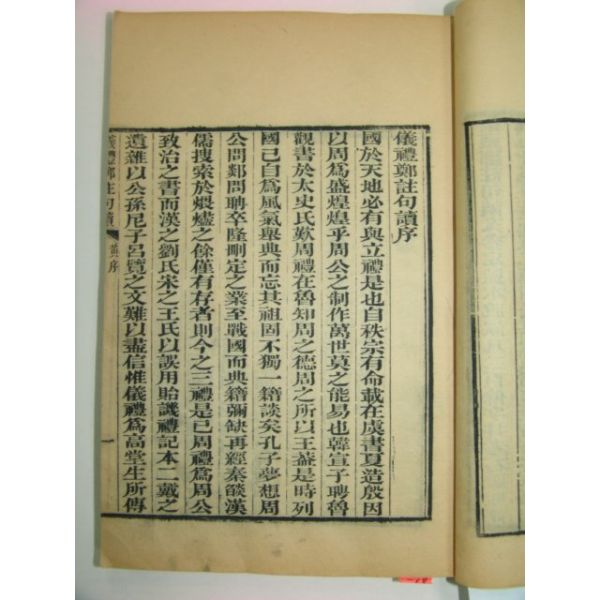 儀禮鄭註句讀序
國於天地必有與立禮是也自秩宗有命載在虞書夏造殷因
以周爲盛煌煌乎周公之制作萬世莫之能易也韓宣子聘魯
觀書於太史氏歎周禮在魯知周之德周之所以王蓋是時列
國已自爲風氣舉典而忘其祖固不獨一籍談矣孔子夢想周
公問鄭問聃卒隆刪定之業至戰國而典籍彌缺再經秦燄漢
儒搜索於煨燼之餘僅有存者則今之三禮是已周禮爲周公
致治之書而漢之劉氏宋之王氏以誤用貽譏禮記本二戴之
遺雜以公孫尼子呂覽之文難以盡信惟儀禮爲高堂生所傳
儀禮鄭註句讀 黃序 一